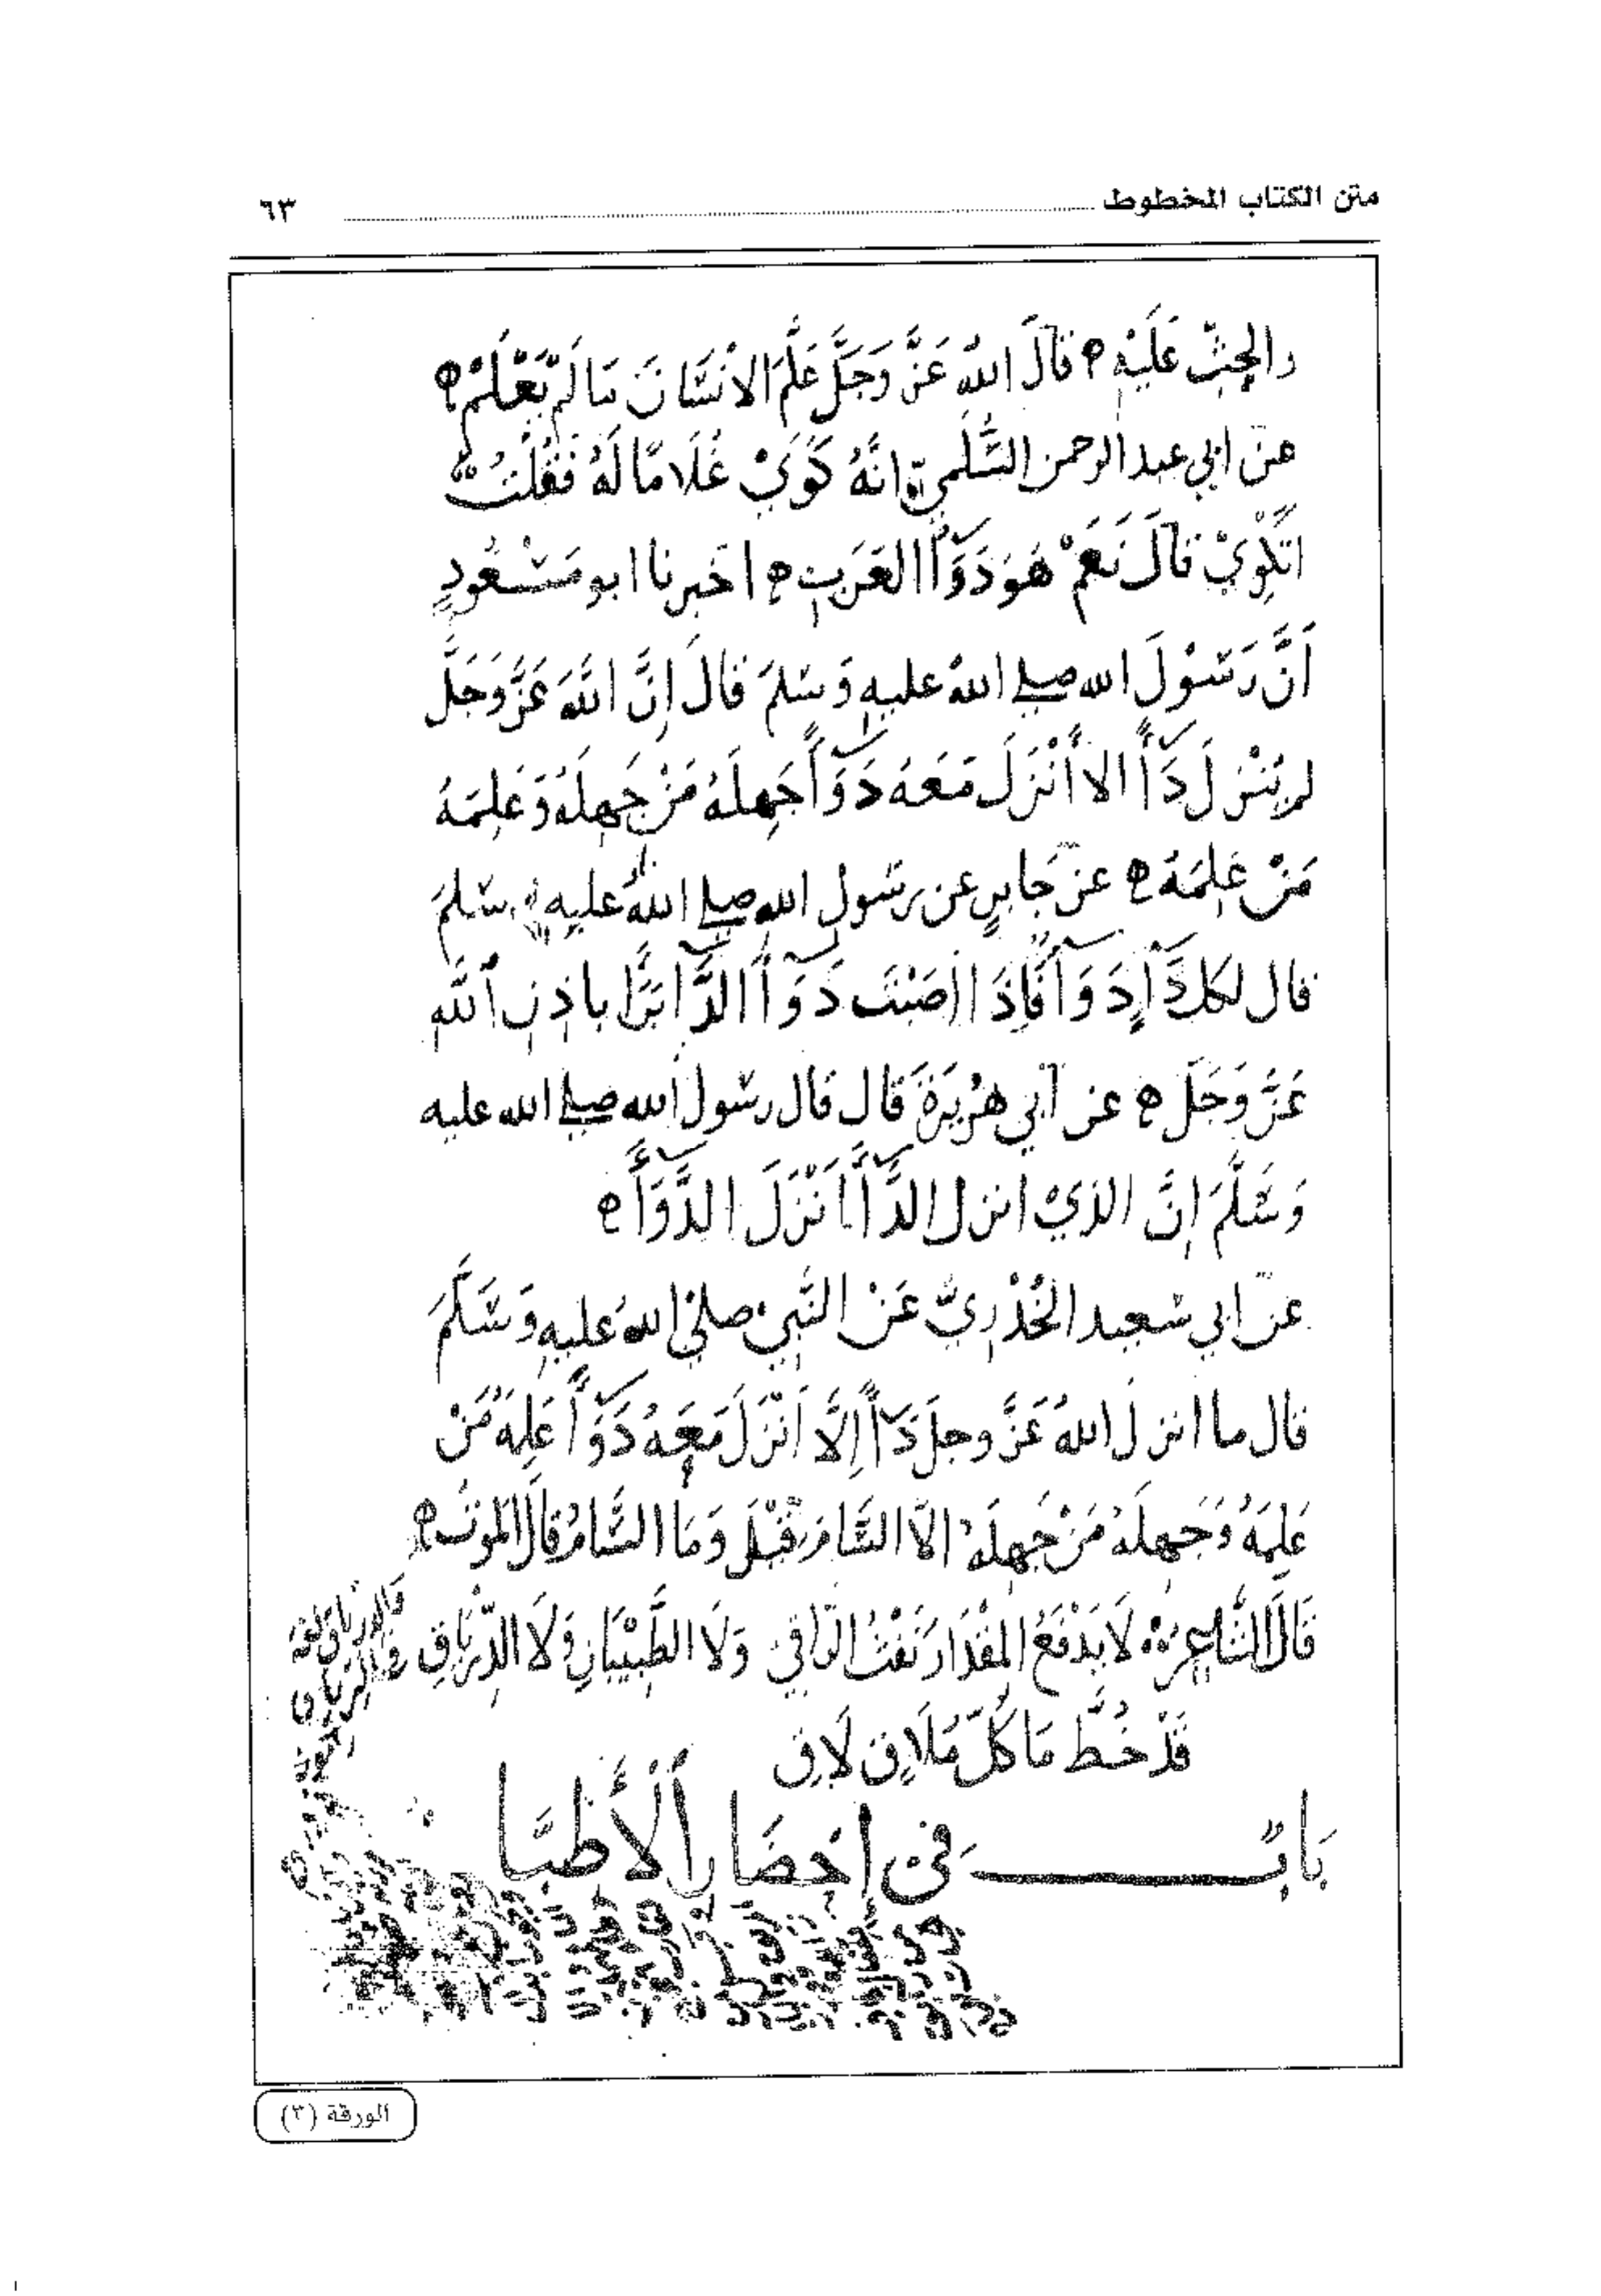 متن الكتاب المخطوط ٦٣
والحثّ عَلَيْهِ ه قالَ اللّه عَزَّ وَجَلَّ عَلَّمَ الانْسَانَ مَا لَمْ يَعْلَمْ ه
عن ابي عبد الرحمن السُّلَمي انَّهُ كَوَيْ غُلَامًا لَهُ فَقُلْتُ
اتَكْوِيْ قالَ نَعَمْ هُوَ دَوَآءُ العَرَبِ ه اخبرنا ابو مَسْعُودٍ
أنَّ رَسُوْلَ الله صلى اللهُ عليهِ وَسَلمَ قالَ إنَّ اللَّهَ عَزَّ وَجَلَّ
لم يُنْزِلْ دَآءً الا أَنْزَلَ مَعَهُ دَوَآءً جَهِلَهُ مَنْ جَهِلَهُ وَعَلِمَهُ
مَنْ عَلِمَهُ ه عن جَابِرٍ عن رسُولِ الله صلى اللهُ عليهِ وسَلمَ
قال لكل دَآءٍ دَوَآءٌ فَاِذَا اُصَبْتَ دَوَآءُ الدَّآءِ بَرَأَ باذنِ اللهِ
عَزَّ وَجَلَّ ه عن أبي هُرَيْرَةَ قال قال رسُول الله صلى الله عليه
وَسَلَّمَ اِنَّ الذيْ انزل الدَّآءَ أَنْزَلَ الدَّوَآءَ ه
عن ابي سَعيد الخُدْرِيِّ عَنْ النَّبِي صلى اللهُ عليهِ وَسَلَّمَ
قال ما انزلَ اللهُ عَزَّ وجلَّ دَآءً اِلَّا اَنْزَلَ مَعَهُ دَوَآءً عَلِمَهُ مَنْ
عَلِمَهُ وَجَهِلَهُ مَنْ جَهِلَهُ الَّا السَّامَ قِيْلَ وَمَا السَّامُ قالَ المَوتُ ه
قَالَ الشَّاعِرُ لَا يَدْفَعُ المِقْدَارَ نَفْثُ الرَّاقي وَلَا الطَّبِيْبَانِ وَلَا الدِّرْيَاقِ
قَدْ خُطَّ مَا كُلُّ مُلَاقٍ لَاقِ
بَابٌ فِي اِحْضَارِ الْأَطِبَّا
الورقة (٣)